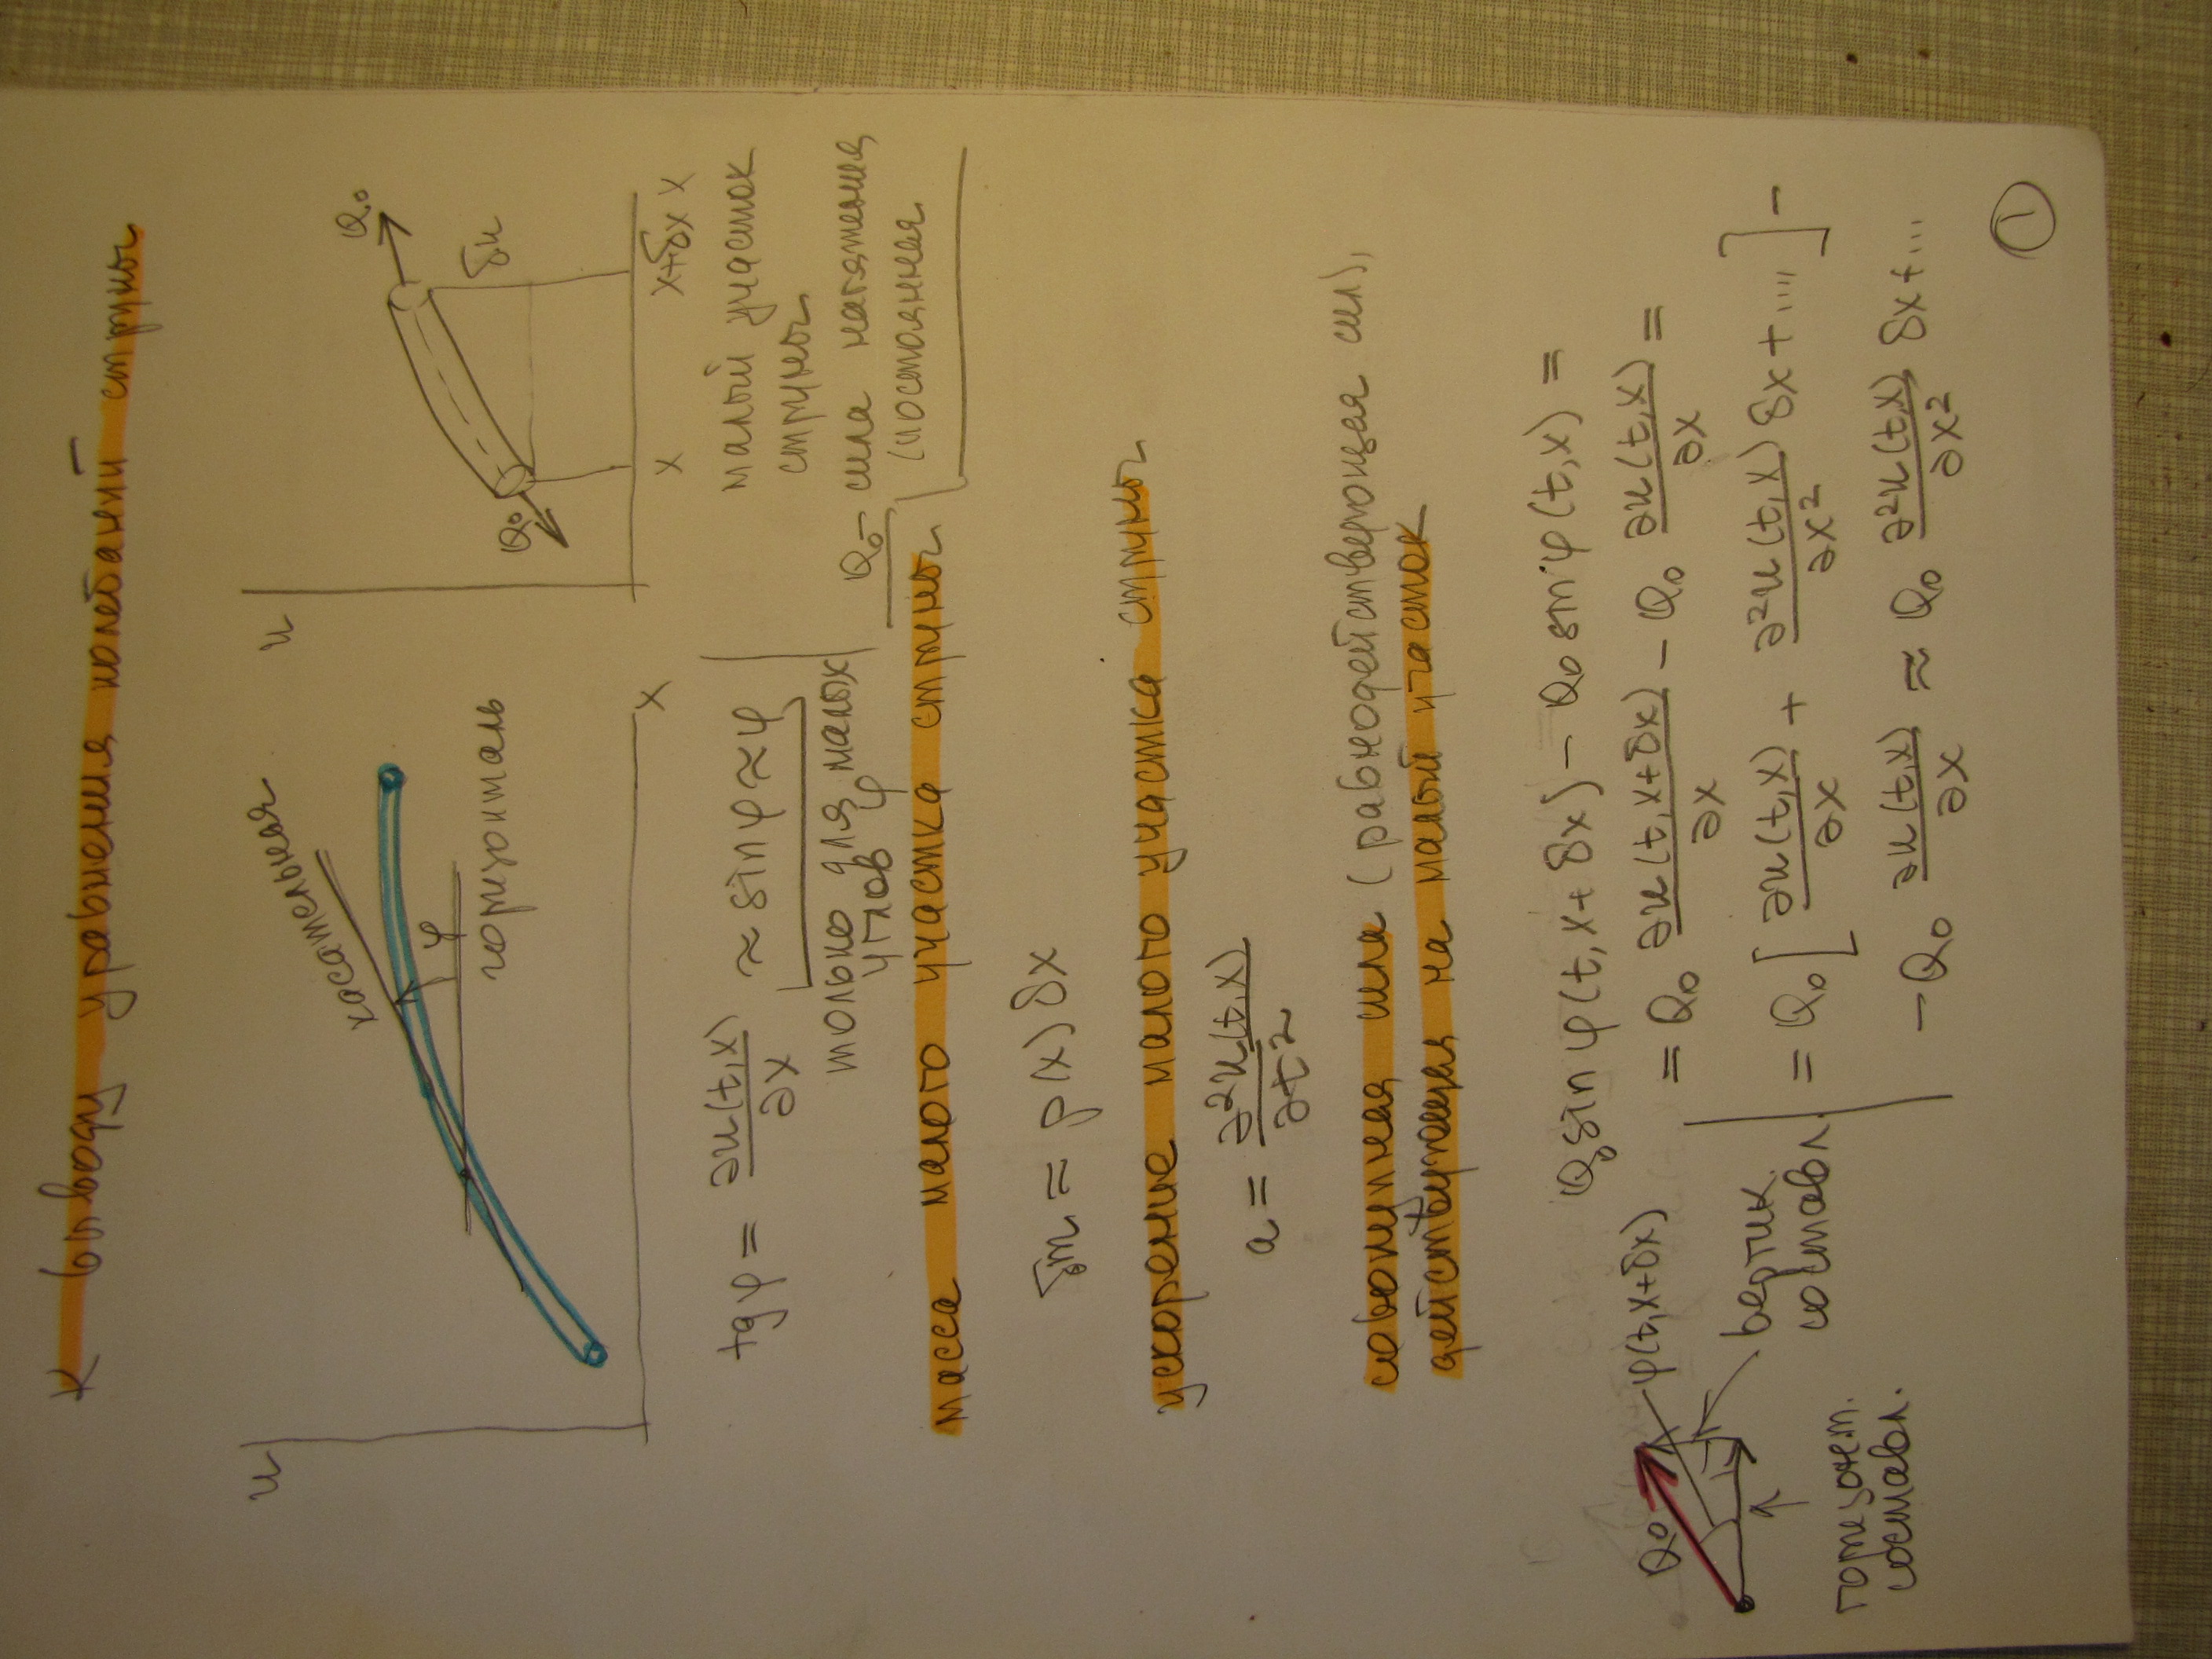 К выводу уравнения колебаний струны
u
касательная
φ
горизонталь
x
u
Q₀
δu
Q₀
x
x+δx x
tgφ = ∂u(t,x)/∂x ≈ sinφ ≈ φ
только для малых
углов φ
малый участок
струны
Q₀ – сила натяжения
(постоянная
масса малого участка струны
δm ≈ ρ(x) δx
ускорение малого участка струны
a = ∂²u(t,x)/∂t²
совокупная сила (равнодействующая сил),
действующая на малый участок
Q₀ sin φ(t, x+δx) − Q₀ sin φ(t,x) =
= Q₀ ∂u(t,x+δx)/∂x − Q₀ ∂u(t,x)/∂x =
= Q₀ [∂u(t,x)/∂x + ∂²u(t,x)/∂x² δx + ....] −
− Q₀ ∂u(t,x)/∂x ≈ Q₀ ∂²u(t,x)/∂x² δx + ...
Q₀
φ(t,x+δx)
вертик.
составл.
горизонт.
составл.
1